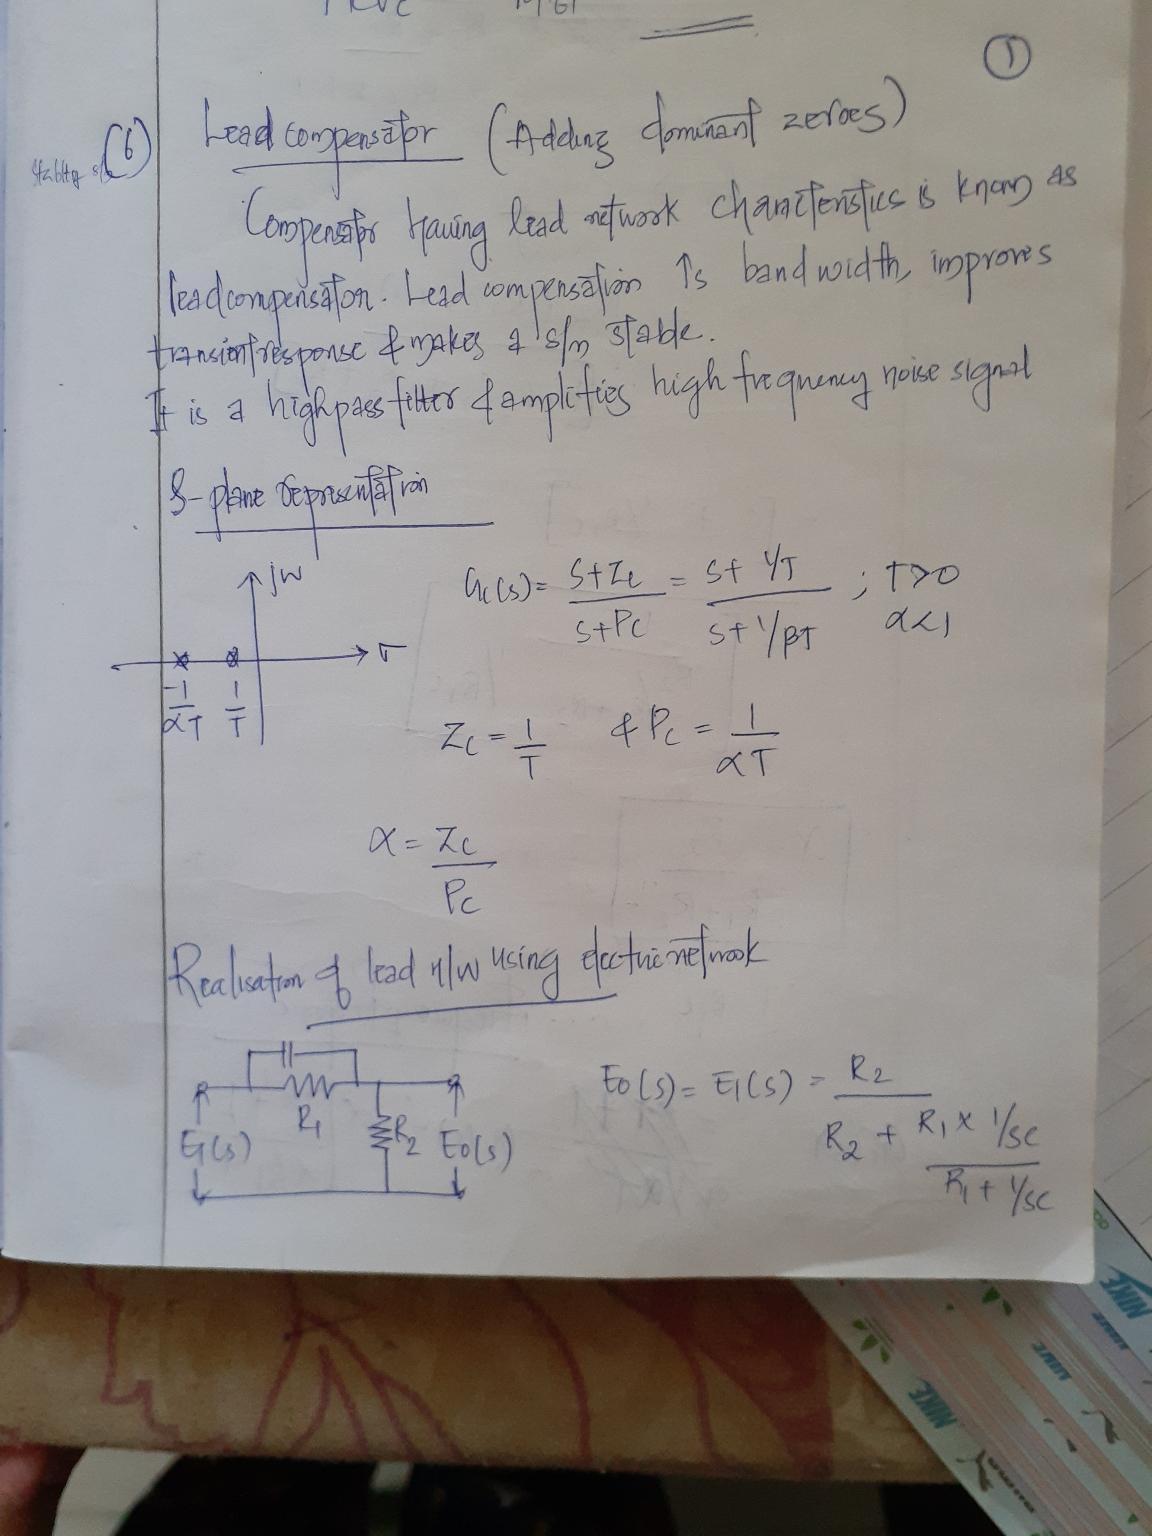 ①
(6) Lead compensator (Adding dominant zeroes)
Compensator Having lead network characteristics is known as
lead compensator. Lead compensation ↑s band width, improves
transient response & makes a s/m stable.
It is a highpass filter & amplifies high frequency noise signal
S-plane representation
jw
σ
-1/αT
-1/T
Gc(s) = S+Zc/S+Pc = S+1/T / S+1/βT ; T>0
α<1
Zc = 1/T & Pc = 1/αT
α = Zc/Pc
Realisation of lead n/w using electric network
R1
Ei(s)
R2
Eo(s)
Eo(s) = Ei(s) = R2 / R2 + R1 x 1/sc / R1 + 1/sc
NIKE
NIKE